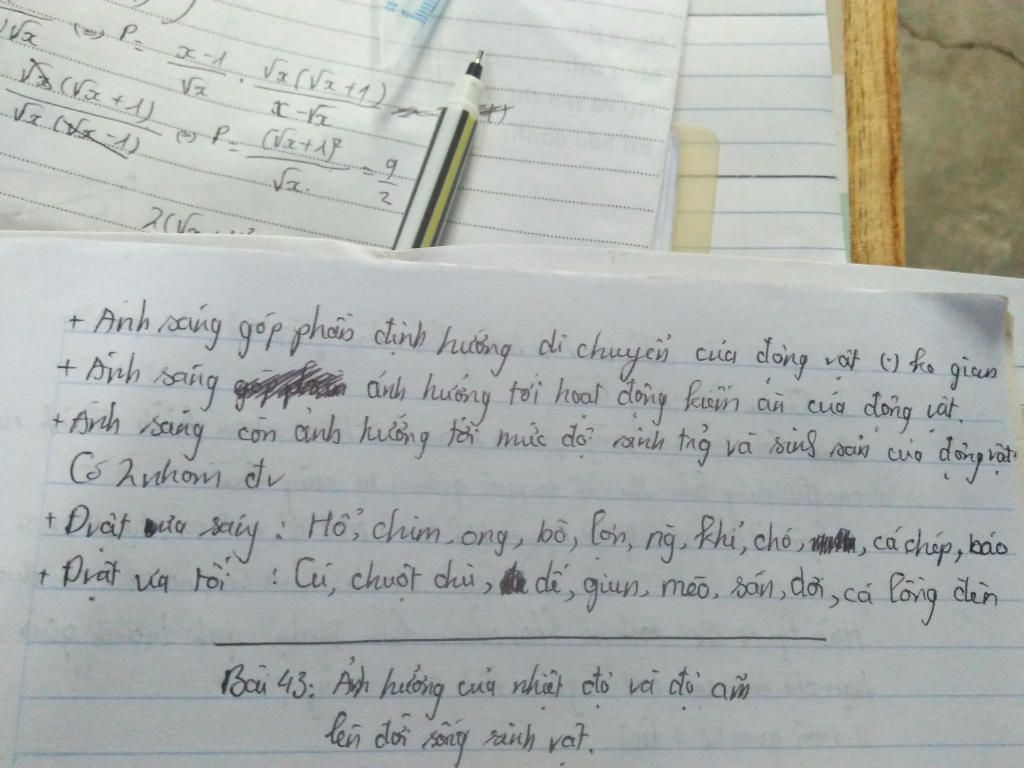 )√x (=) P = x-1/√x . √x(√x+1)/x-√x
√x(√x+1)/√x(√x-1) (=) P = (√x+1)²/√x = 9/2
+ Ánh sáng góp phần định hướng di chuyển của động vật (.) ko gian
+ Ánh sáng ảnh hưởng tới hoạt động kiếm ăn của động vật.
+ Ánh sáng còn ảnh hưởng tới mức độ sinh trg và sinh sản của động vật
Có 2 nhóm đv
+ Đvật ưa sáng : Hổ, chim, ong, bò, lợn, ng, khỉ, chó, cá chép, báo
+ Đvật ưa tối : Cú, chuột chũi, dế, giun, mèo, sán, dơi, cá lồng đèn
Bài 43: Ảnh hưởng của nhiệt độ và độ ẩm
lên đời sống sinh vật.